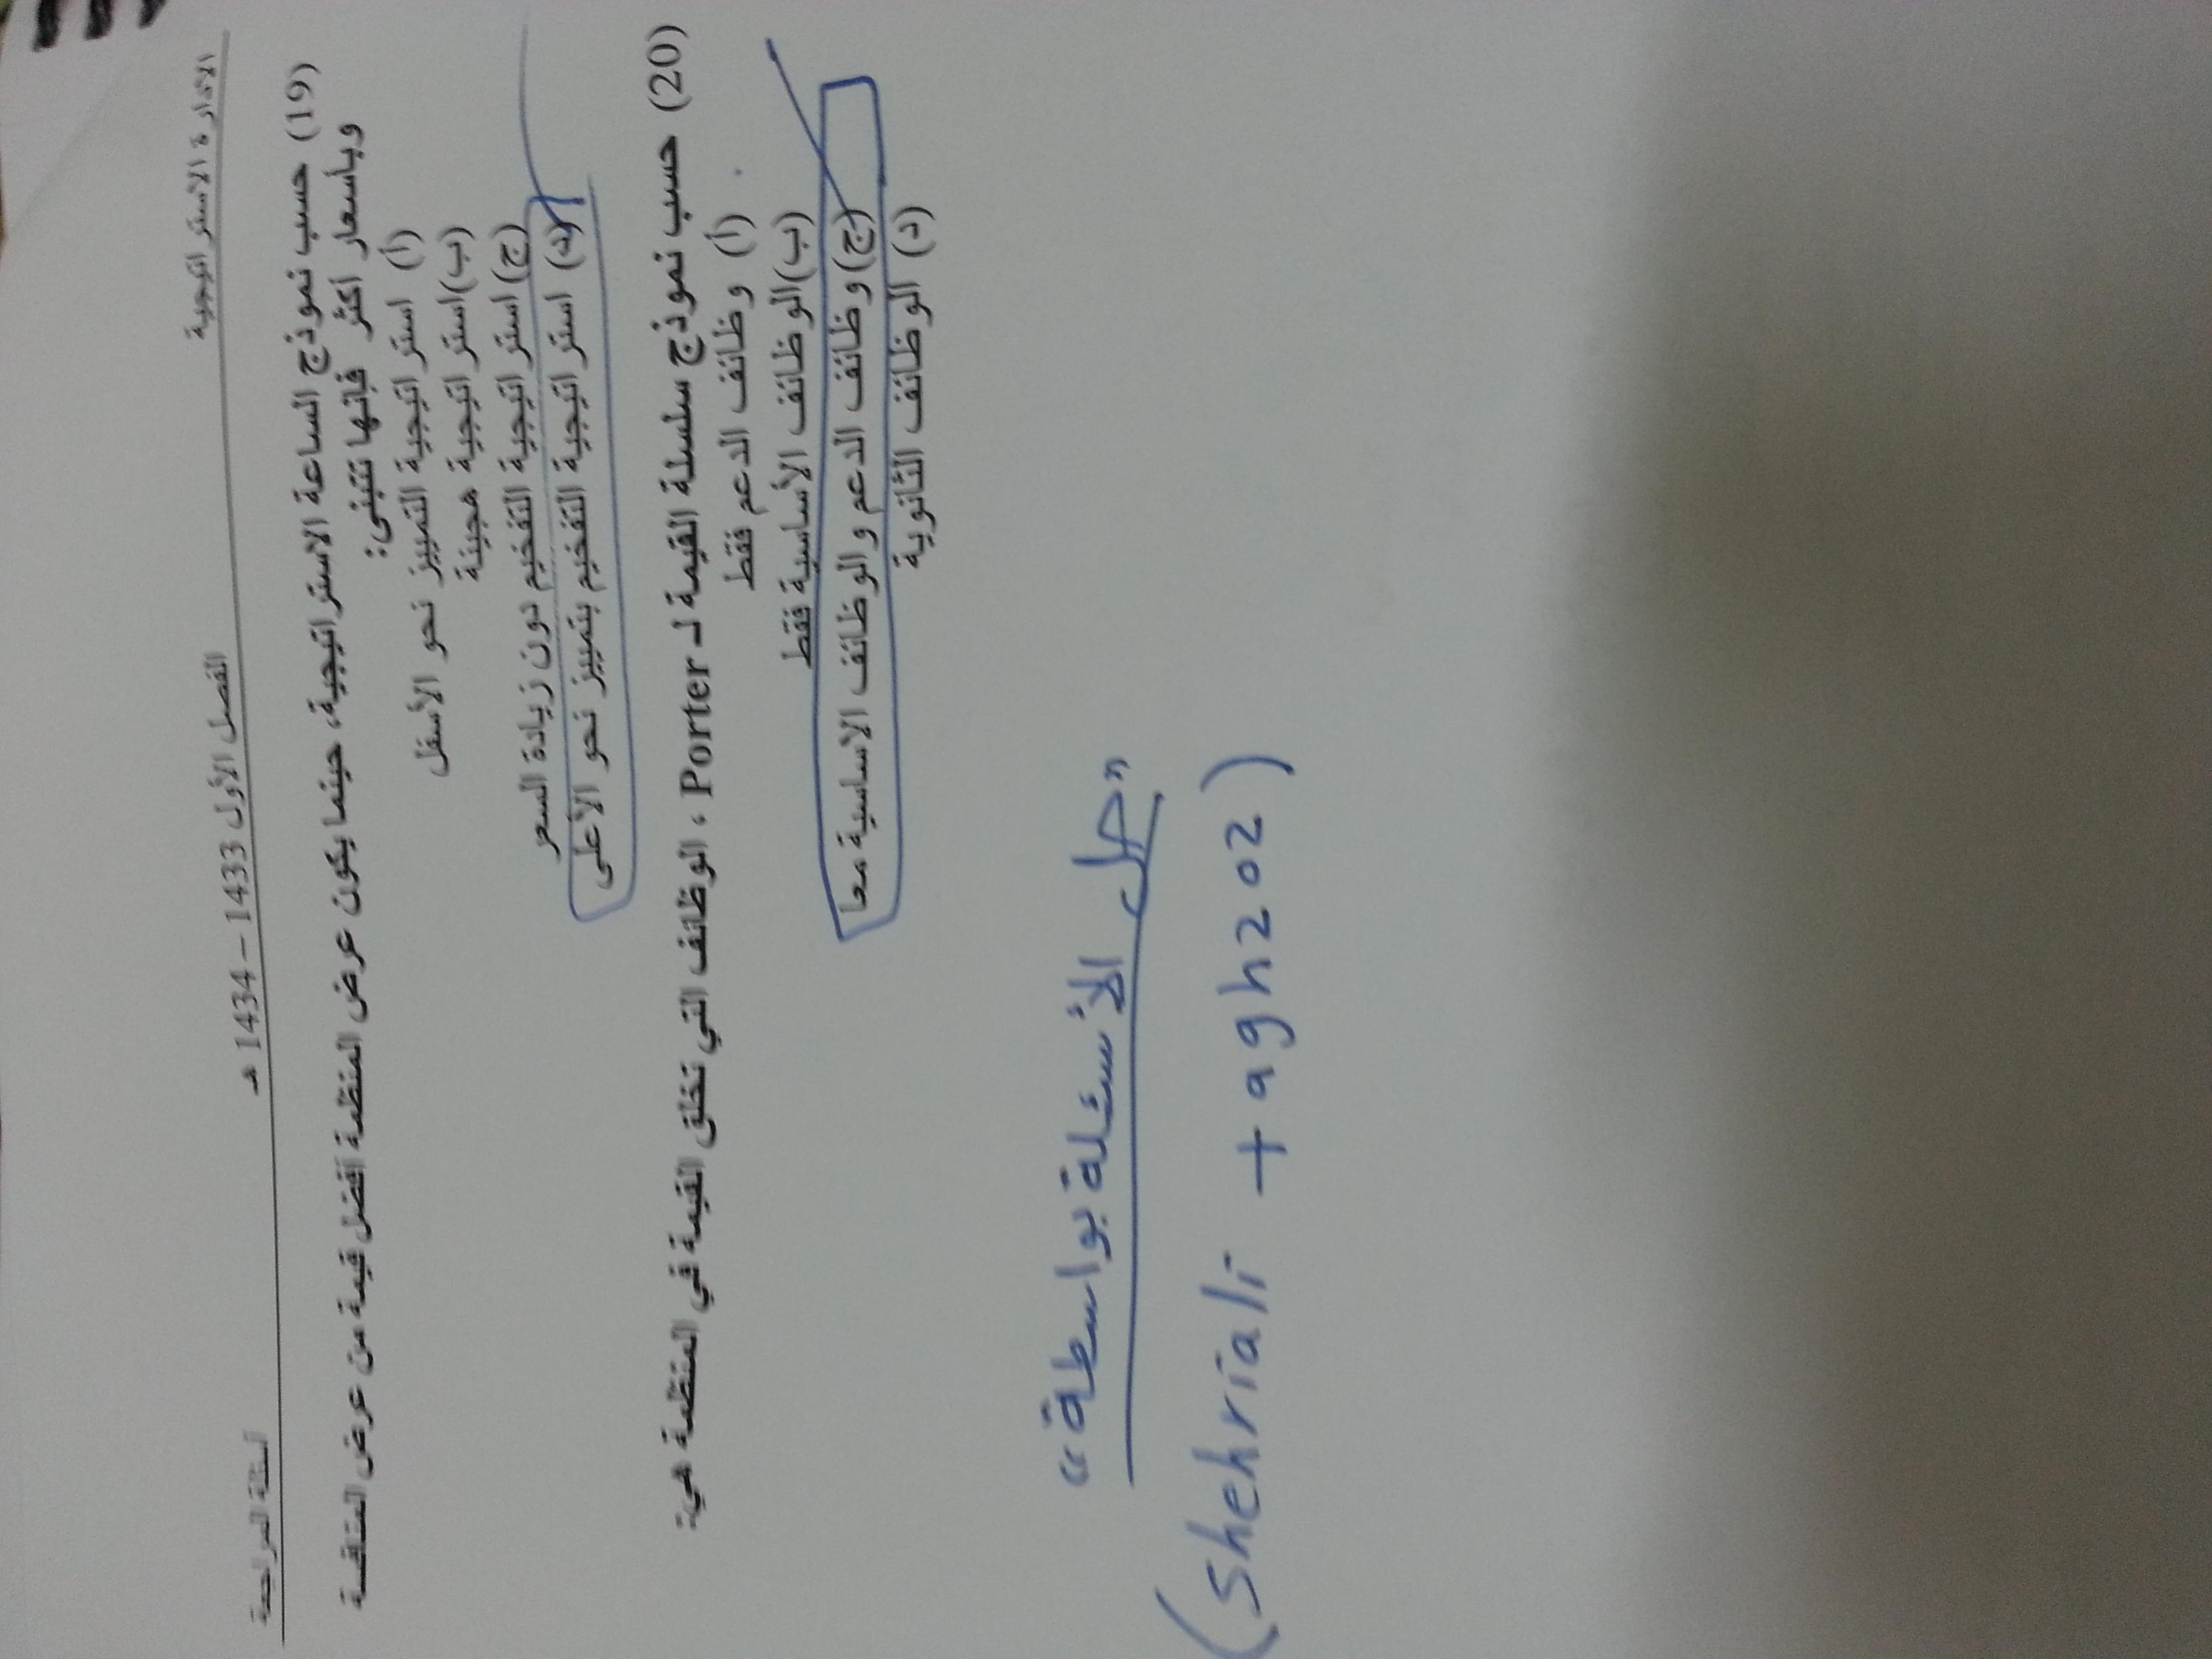 الادارة الاستراتيجية الفصل الأول 1433 – 1434 هـ أسئلة المراجعة
(19) حسب نموذج الساعة الاستراتيجية، حينما يكون عرض المنظمة أفضل قيمة من عرض المنافسة
وبأسعار أكثر فإنها تتبنى:
(أ) استراتيجية التمييز نحو الأسفل
(ب) استراتيجية هجينة
(ج) استراتيجية التفخيم دون زيادة السعر
(د) استراتيجية التفخيم بتمييز نحو الأعلى
(20) حسب نموذج سلسلة القيمة لـ Porter ، الوظائف التي تخلق القيمة في المنظمة هي:
(أ) وظائف الدعم فقط
(ب) الوظائف الأساسية فقط
(ج) وظائف الدعم والوظائف الاساسية معا
(د) الوظائف الثانوية
"حل الأسئلة بواسطة"
(shehriali + agh202)